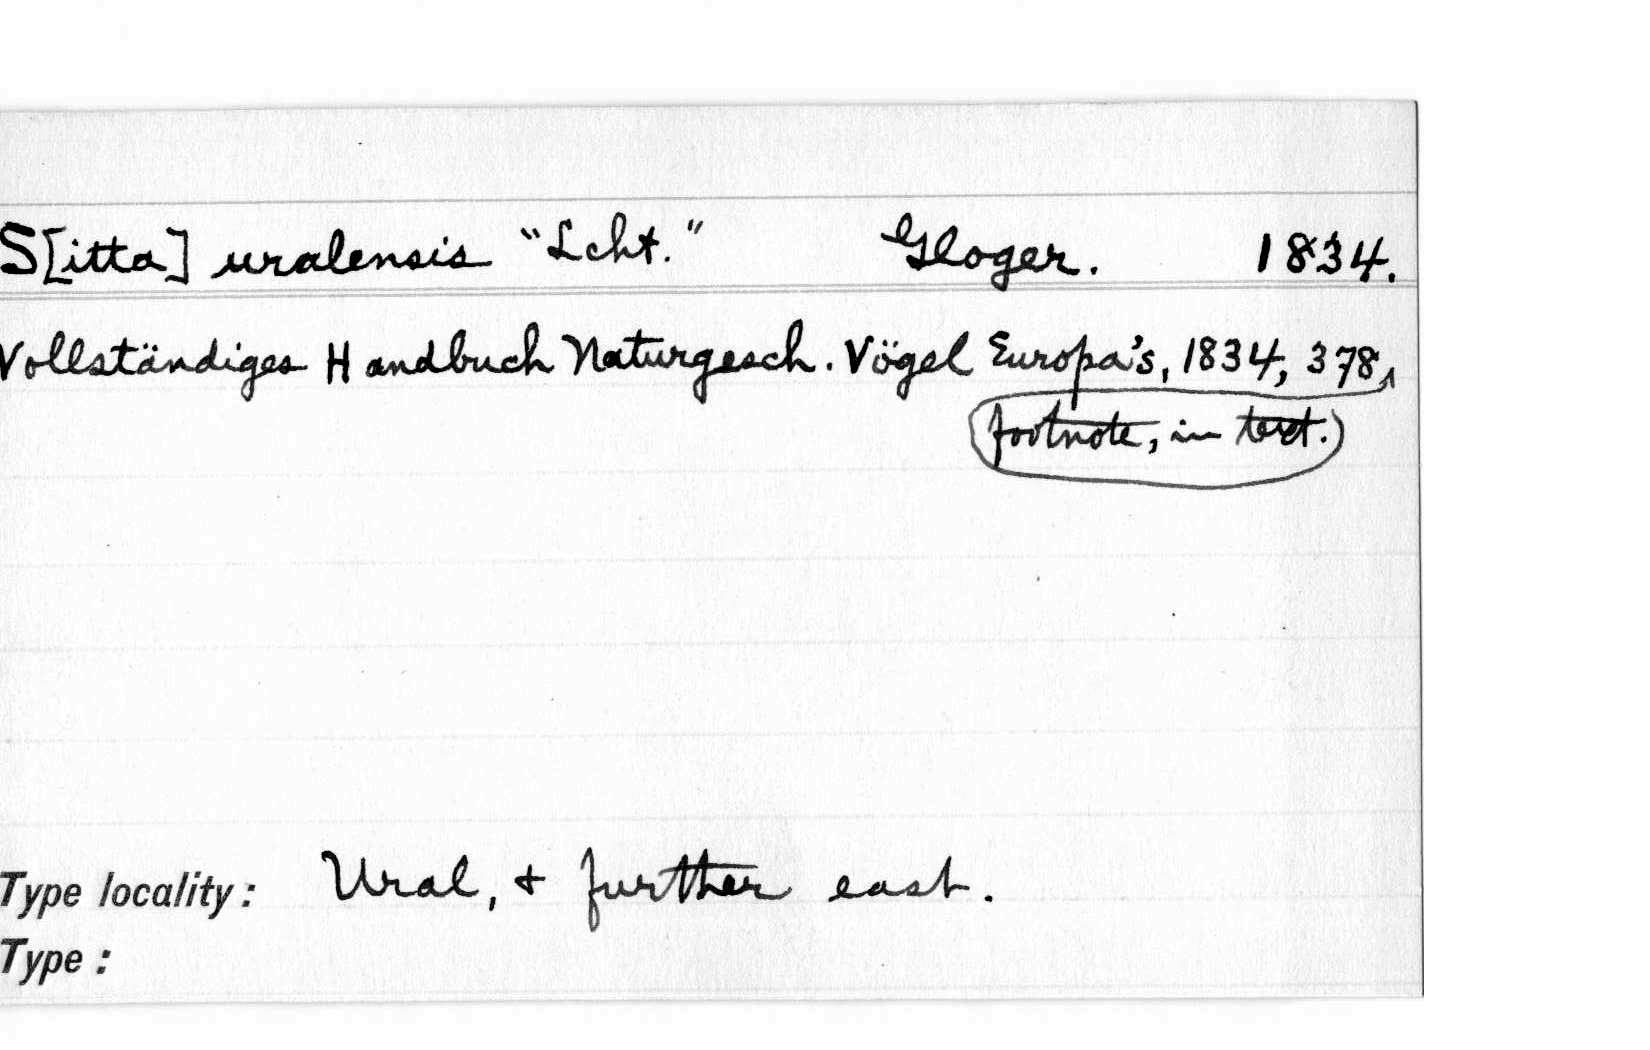 S[itta] uralensis "Lcht." Gloger. 1834.
Vollständiges Handbuch Naturgesch. Vögel Europa's, 1834, 378
footnote, in text.)
Type locality: Ural, + further east.
Type: